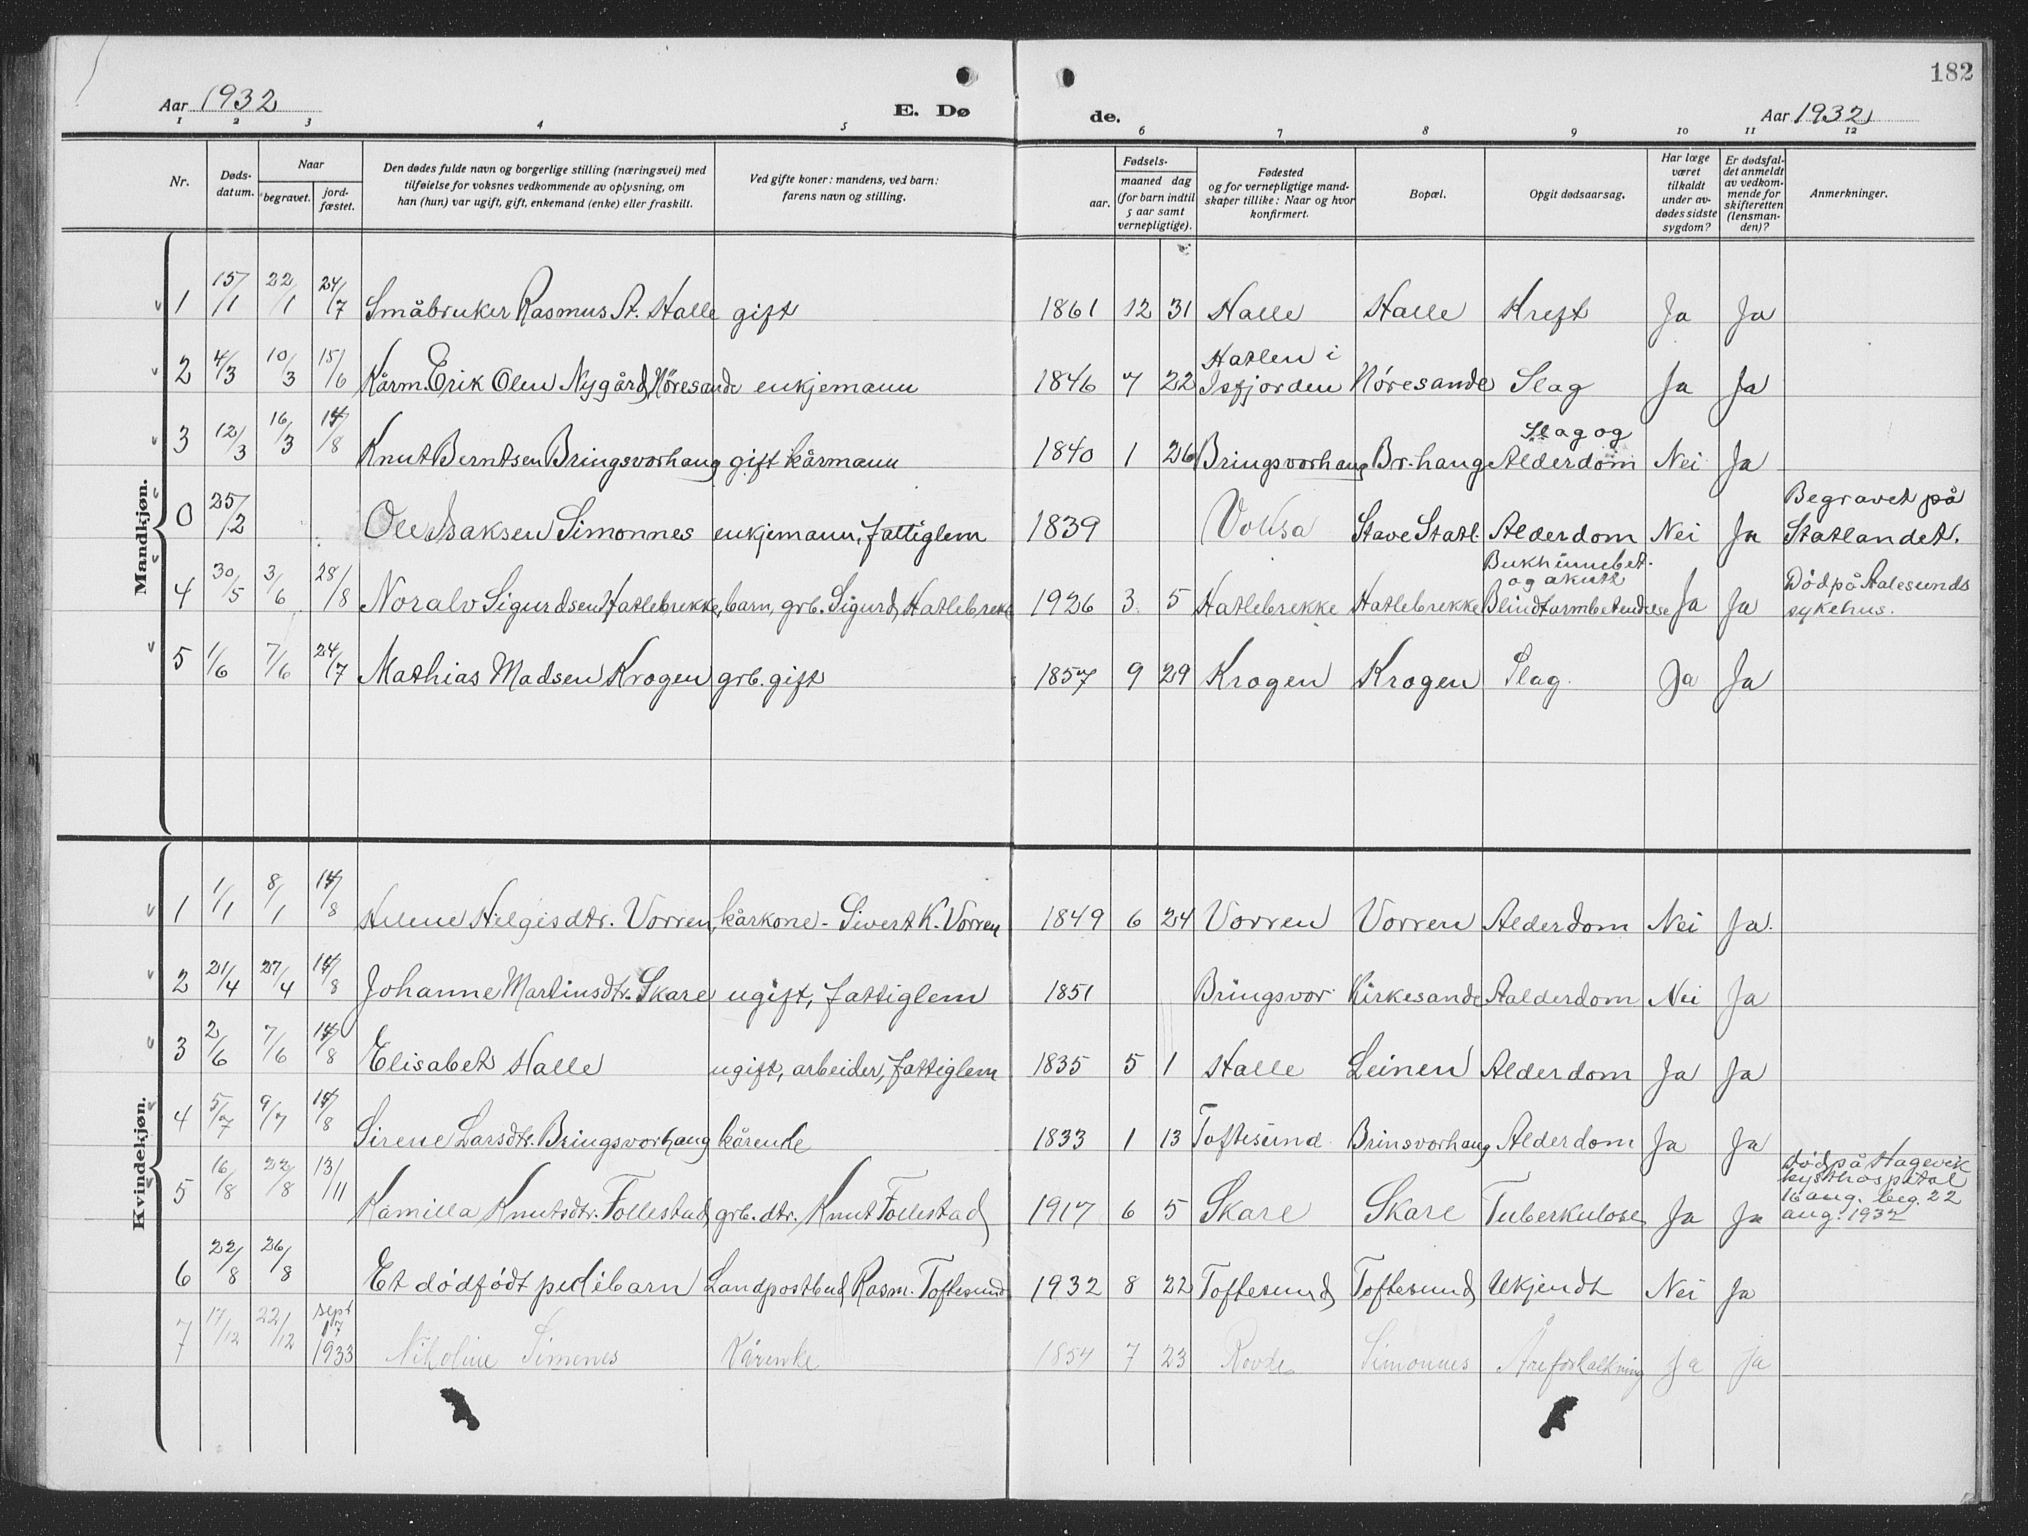 182
Aar 1932
E. Dø
de.
Aar 1932
1 2 3 4 5 6 7 8 9 10 11 12
Nr.
Døds-
datum.
Naar
begravet.
jord-
fæstet.
Den dødes fulde navn og borgerlige stilling (næringsvei) med
tilføielse for voksnes vedkommende av oplysning, om
han (hun) var ugift, gift, enkemand (enke) eller fraskilt.
Ved gifte koner: mandens, ved barn:
farens navn og stilling.
Fødsels-
aar.
maaned dag
(for barn indtil
5 aar samt
vernepligtige).
Fødested
og for vernepligtige mand-
skaper tillike: Naar og hvor
konfirmert.
Bopæl.
Opgit dødsaarsag.
Har læge
været
tilkaldt
under av-
dødes sidste
sygdom?
Er dødsfal-
det anmeldt
av vedkom-
mende for
skifteretten
(lensman-
den)?
Anmerkninger.
Mandkjøn.
1 15/1 22/1 24/7 Småbruker Rasmus A. Halle gift 1861 12 31 Halle Halle Kreft Ja Ja
2 4/3 10/3 15/6 Kårm. Erik Olsen Nygård, Nøresande enkjemann 1846 7 22 Hatlen i
Isfjorden Nøresande Slag Ja Ja
3 12/3 16/3 14/8 Knut Berntsen Bringsvorhaug gift kårmann 1840 1 26 Bringsvorhaug Br.haug Slag og
Alderdom Nei Ja
0 25/2 Ole Isaksen Simonnes enkjemann, fattiglem 1839 Voksa Stave Statl. Alderdom Nei Ja Begravet på
Statlandet.
4 30/5 3/6 28/8 Noralv Sigurdsen Hatlebrekke, barn, grb. Sigurd Hatlebrekk 1926 3 5 Hatlebrekke Hatlebrekke Bukhinnebet.
og akutt
Blindtarmbetendelse Ja Ja Död på Aalesunds
sykehus.
5 1/6 7/6 24/7 Mathias Madsen Krogen grb. gift 1857 9 29 Krogen Krogen Slag. Ja Ja
Kvindekjøn.
1 1/1 8/1 14/8 Helene Helgesdtr. Vorren, kårkone - Sivert K. Vorren 1849 6 24 Vorren Vorren Alderdom Nei Ja.
2 21/4 27/4 14/8 Johanne Martinsdtr. Skare ugift, fattiglem 1851 Bringsvor Kirkesande Aalderdom Nei Ja
3 2/6 7/6 14/8 Elisabet Halle ugift, arbeider, fattiglem 1835 5 1 Halle Leinen Alderdom Ja Ja
4 5/7 9/7 14/8 Sirene Larsdtr. Bringsvorhaug kårenke 1833 1 13 Toftesund Brinsvorhaug Alderdom Ja Ja
5 16/8 22/8 13/11 Kamilla Knutsdtr. Follestad grb. dtr. Knut Follestad 1917 6 5 Skare Skare Tuberkulose Ja Ja Död på Hagevik
kysthospital
16 aug. beg. 22
aug. 1932
6 22/8 26/8 Et dödfödt pikebarn Landpostbud Rasm. Toftesund 1932 8 22 Toftesund Toftesund Ukjendt Nei Ja
7 17/12 22/12 sept
17
1933 Nikoline Simenes Kårenke 1854 7 23 Rovde Simonnes Åreforkalkning Ja ja